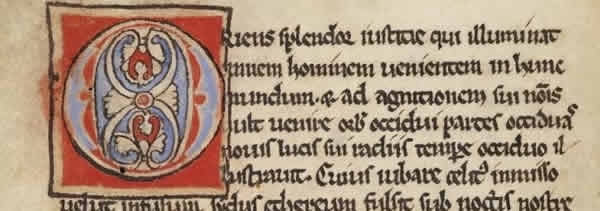 Oriens splendor iustitie qui illuminat
omnem hominem uenientem in hunc
mundum. & ad agnitionem sui nōis
uult uenire orb̄ occidui partes occiduas
nouis lucis sui radiis tempore occiduo il
lustrauit. Cuius iubare celit᷒ inmisso
uelut sidus ethereum fulsit sub noctis nostre